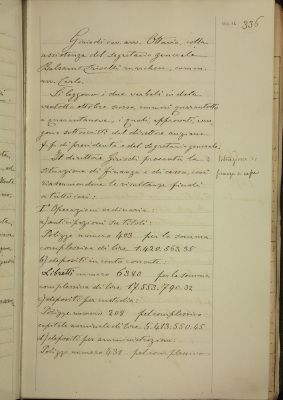 336
Giriodi cav. avv. Ottavio, colla
assistenza del segretario generale
Balsamo Crivelli marchese, comm.
avv. Carlo.
Si leggono i due verbali in data
ventotto ottobre scorso numeri quarantotto
e quarantanove, i quali, approvati, ven-
gono sottoscritti dal direttore anziano
f.f. di presidente e dal segretario generale.
Il direttore Giriodi presenta la
situazione di finanza e di cassa, così
riassumendone le risultanze finali
attuali:
Situazione di
finanza e cassa
1° Operazioni ordinarie:
a) anticipazioni su titoli:
Polizze numero 403 per la somma
complessiva di lire 1.420.563.35
b) depositi in conto corrente:
Libretti numero 6380 per la somma
complessiva di lire 17.553.790.32
c) depositi per custodia:
Polizze numero 208 pel complessivo
capitale nominale di lire 5.413.550.45
d) depositi per amministrazione:
Polizze numero 431 pel complessivo